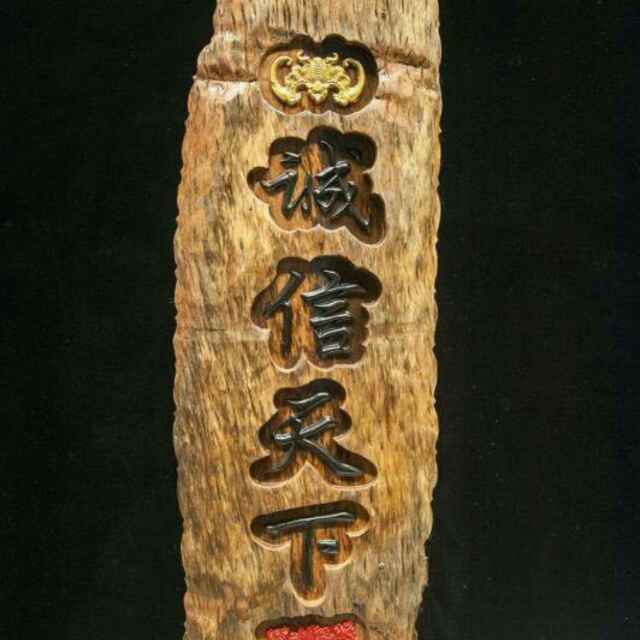 诚信天下